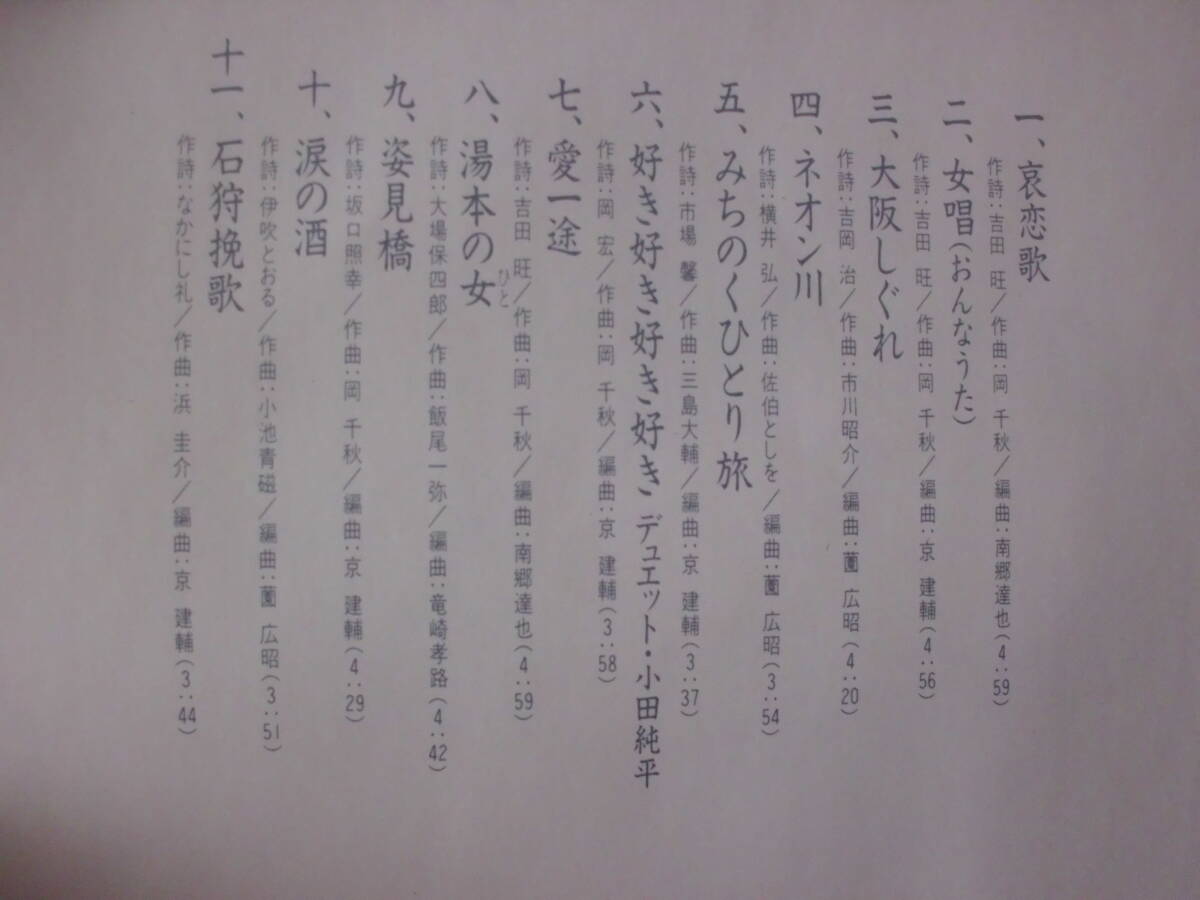 一、哀恋歌
作詩:吉田 旺/作曲:岡 千秋/編曲:南郷達也(4:59)
二、女唱(おんなうた)
作詩:吉田 旺/作曲:岡 千秋/編曲:京 建輔(4:56)
三、大阪しぐれ
作詩:吉岡 治/作曲:市川昭介/編曲:薗 広昭(4:20)
四、ネオン川
作詩:横井 弘/作曲:佐伯としを/編曲:薗 広昭(3:54)
五、みちのくひとり旅
作詩:市場 馨/作曲:三島大輔/編曲:京 建輔(3:37)
六、好き好き好き好き デュエット・小田純平
作詩:岡 宏/作曲:岡 千秋/編曲:京 建輔(3:58)
七、愛一途
作詩:吉田 旺/作曲:岡 千秋/編曲:南郷達也(4:59)
八、湯本の女
ひと
作詩:大場保四郎/作曲:飯尾一弥/編曲:竜崎孝路(4:42)
九、姿見橋
作詩:坂口照幸/作曲:岡 千秋/編曲:京 建輔(4:29)
十、涙の酒
作詩:伊吹とおる/作曲:小池青磁/編曲:薗 広昭(3:51)
十一、石狩挽歌
作詩:なかにし礼/作曲:浜 圭介/編曲:京 建輔(3:44)